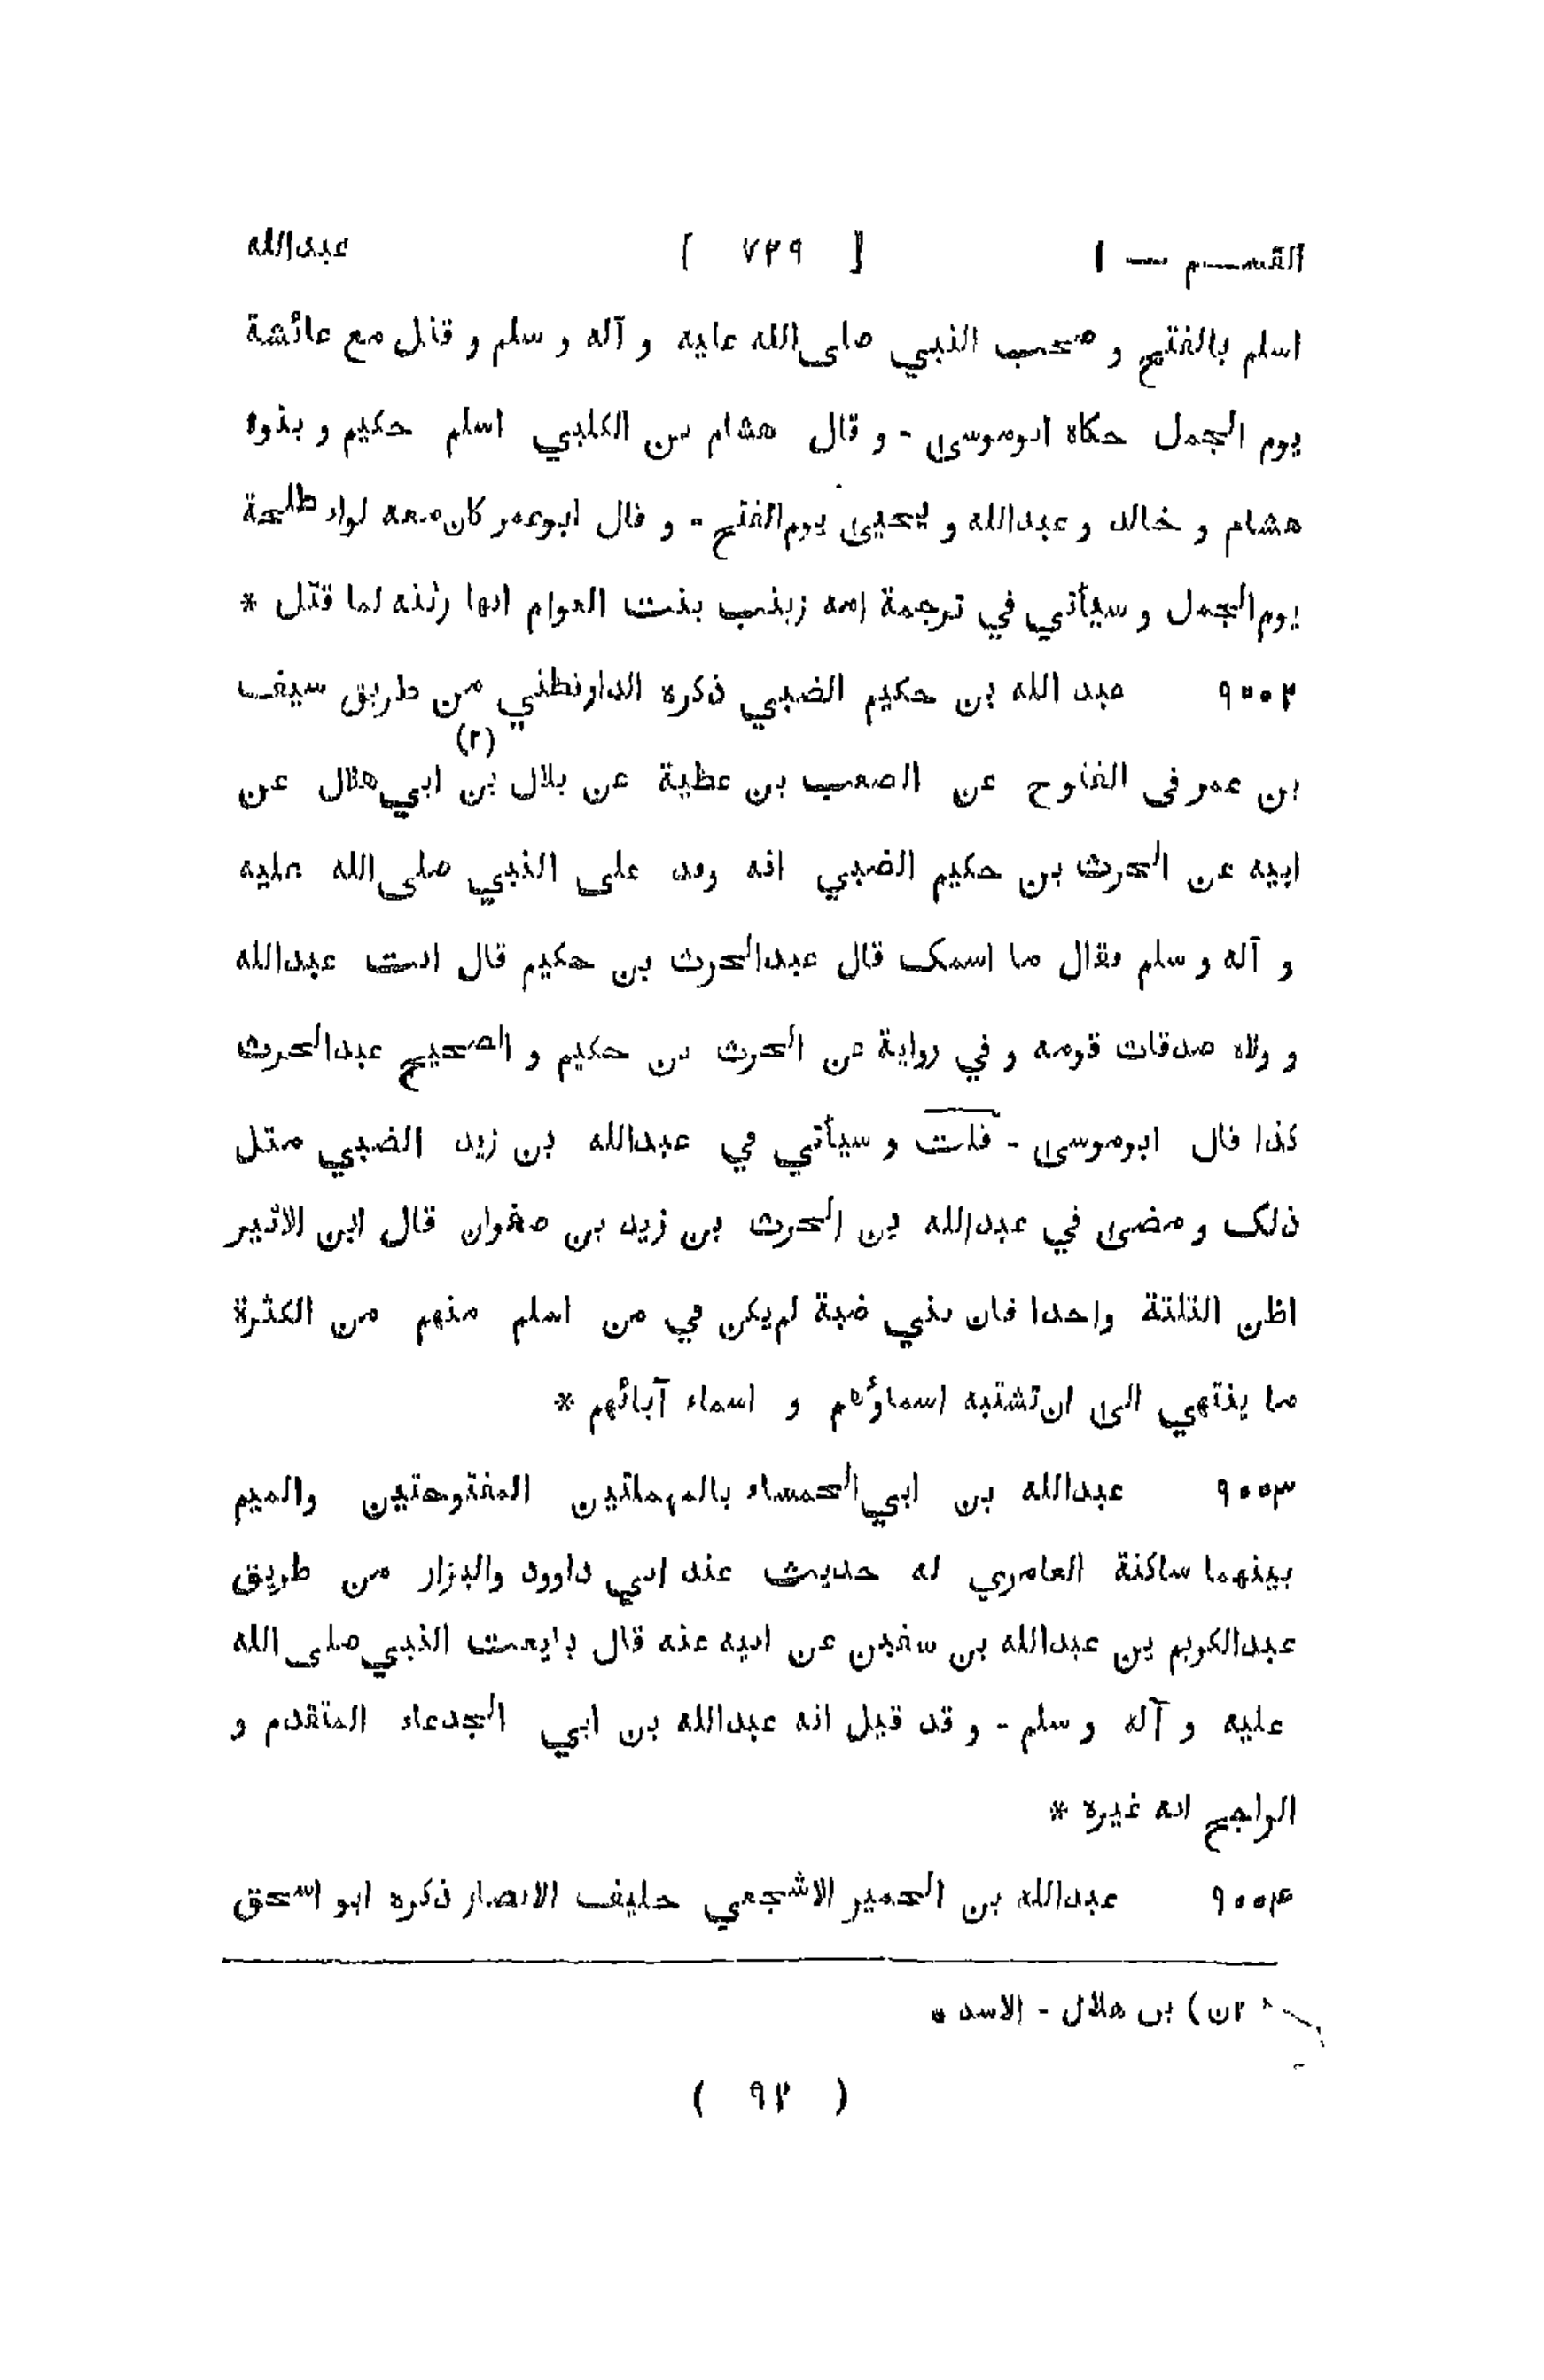 القسم — ١ [ ٧٢٩ ] عبدالله
اسلم بالفتح و صحب النبي صلى الله عليه و آله و سلم و قتل مع عائشة
يوم الجمل حكاه ابوموسى - و قال هشام بن الكلبي اسلم حكيم و بنوه
هشام و خالد و عبدالله و يحيى يوم الفتح - و قال ابوعمر كان معه لواء طلحة
يوم الجمل و سيأتي في ترجمة امه زينب بنت العوام انها رثته لما قتل *
٩٠٠٢ عبد الله بن حكيم الضبي ذكره الدارقطني من طريق سيف
بن عمر فى الفتوح عن الصعب بن عطية عن بلال (٢) بن ابي هلال عن
ابيه عن الحرث بن حكيم الضبي انه وفد على النبي صلى الله عليه
و آله و سلم فقال ما اسمك قال عبدالحرث بن حكيم قال انت عبدالله
و ولاه صدقات قومه و في رواية عن الحرث بن حكيم و الصحيح عبدالحرث
كذا قال ابوموسى - قلت و سيأتي في عبدالله بن زيد الضبي مثل
ذلك و مضى في عبدالله بن الحرث بن زيد بن صفوان قال ابن الاثير
اظن الثلثة واحدا فان بني ضبة لم يكن في من اسلم منهم من الكثرة
ما ينتهي الى ان تشتبه اسماؤهم و اسماء آبائهم *
٩٠٠٣ عبدالله بن ابي الحمساء بالمهملتين المفتوحتين والميم
بينهما ساكنة العامري له حديث عند ابي داوود والبزار من طريق
عبدالكريم بن عبدالله بن سفين عن ابيه عنه قال بايعت النبي صلى الله
عليه و آله و سلم - و قد قيل انه عبدالله بن ابي الجدعاء المتقدم و
الراجح انه غيره *
٩٠٠٤ عبدالله بن الحمير الاشجعي حليف الانصار ذكره ابو اسحق
٢ن) بن هلال - الاسد *
( ٩٢ )